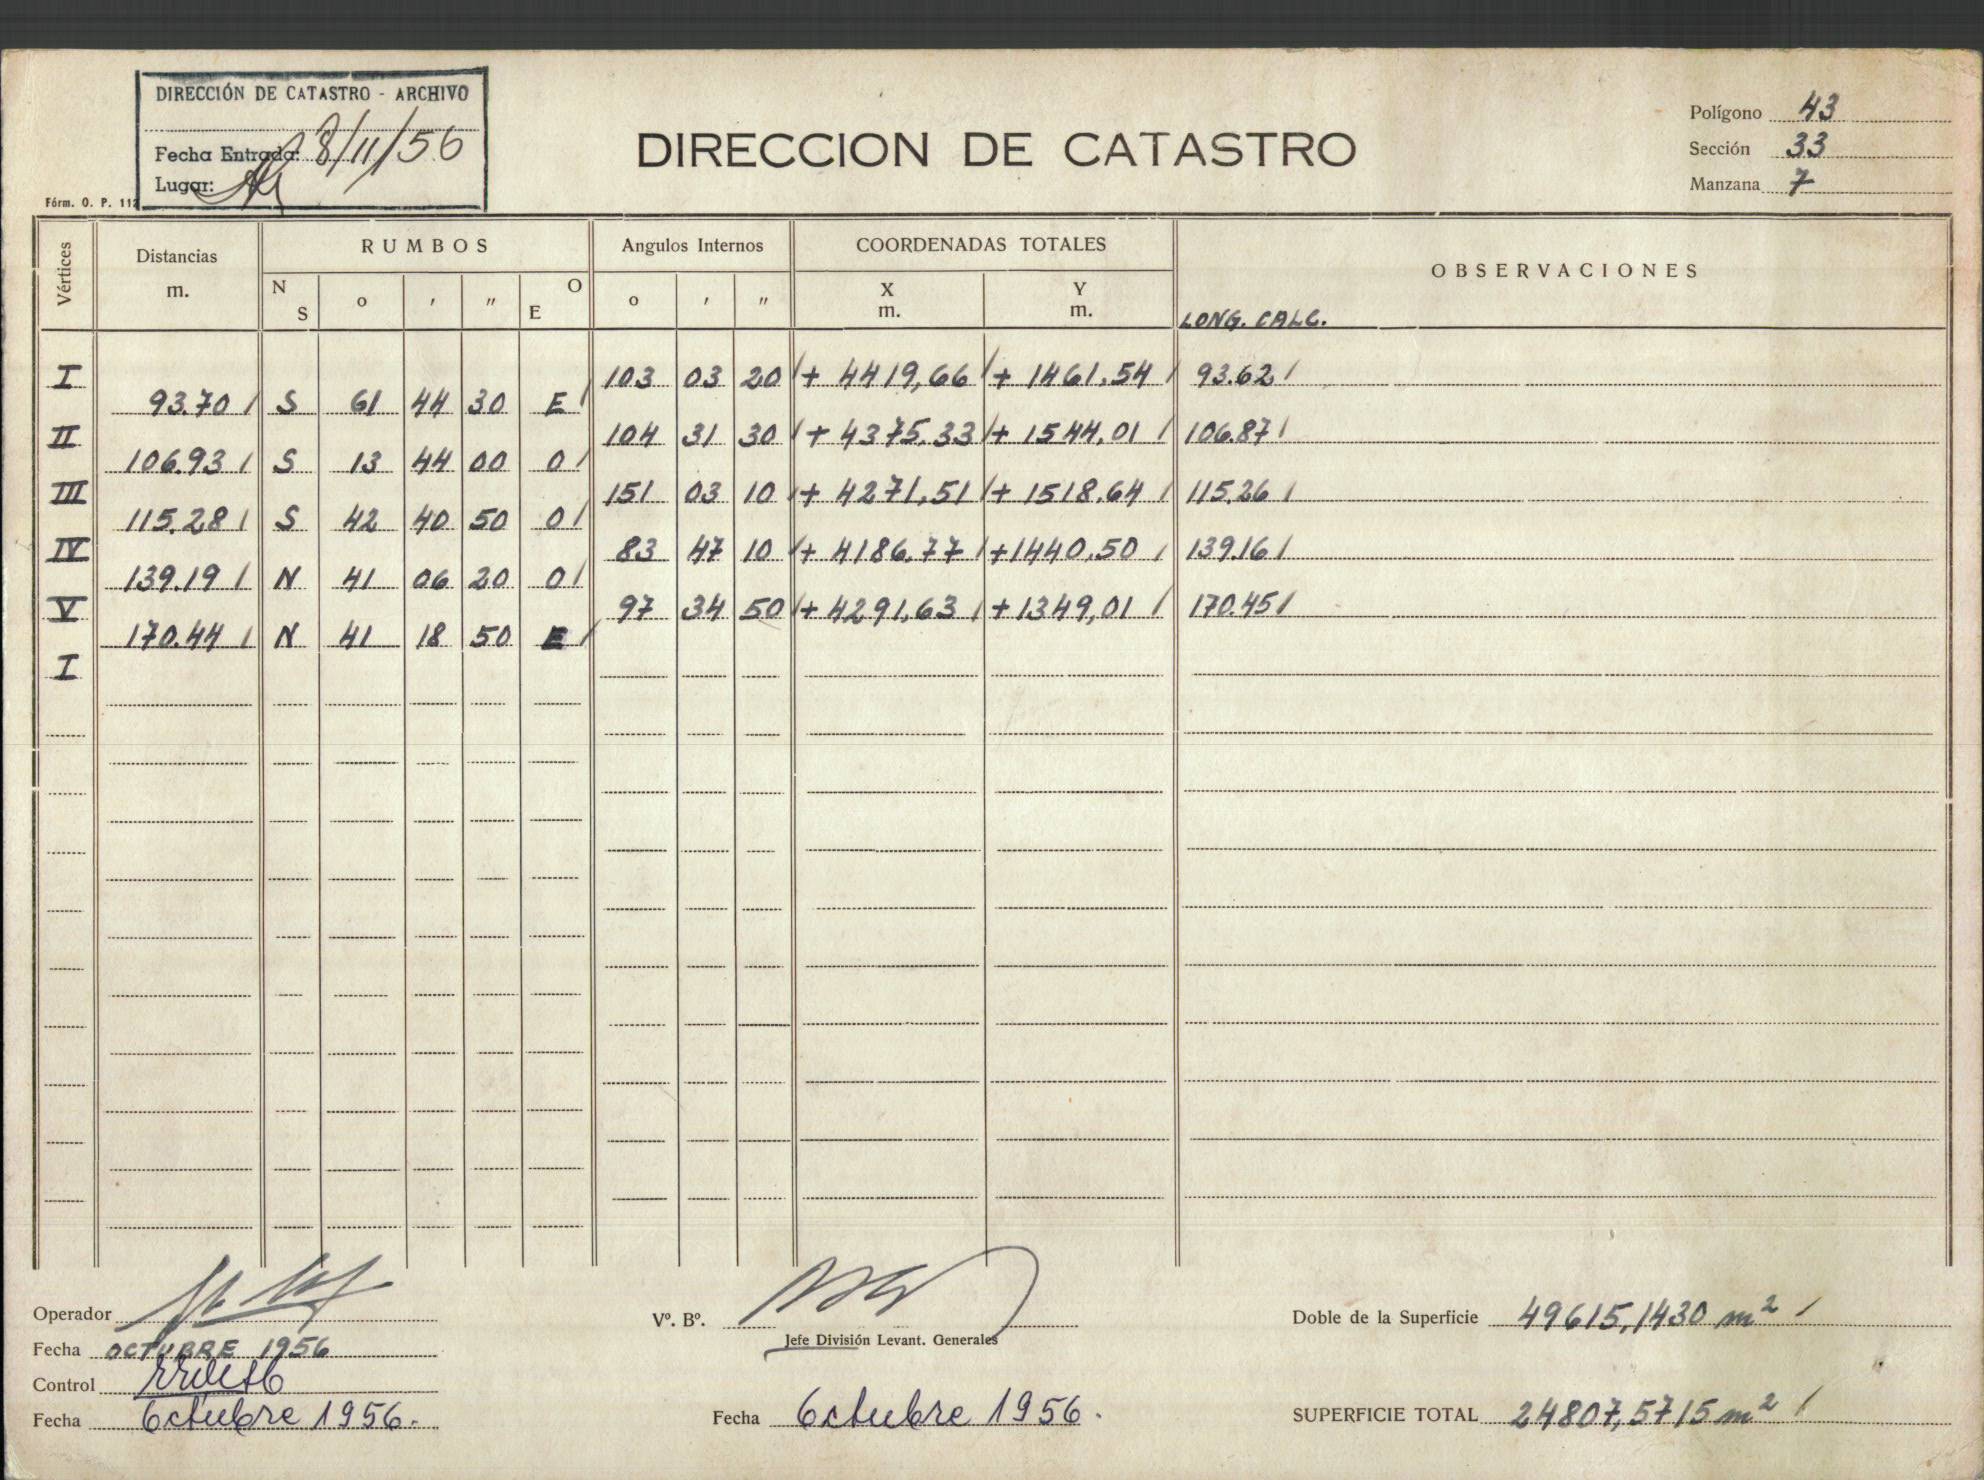 DIRECCIÓN DE CATASTRO - ARCHIVO
Fecha Entrada: 8/11/56
Lugar:
Fórm. O. P. 112
DIRECCION DE CATASTRO
Polígono 43
Sección 33
Manzana 7
Vértices Distancias m. RUMBOS Angulos Internos COORDENADAS TOTALES OBSERVACIONES
N S o ' " O E o ' " X m. Y m. LONG. CALC.
I 103 03 20 + 4419,66 + 1461.54 93.62
93.70 S 61 44 30 E
II 104 31 30 + 4375.33 + 1544,01 106.87
106.93 S 13 44 00 O
III 151 03 10 + 4271,51 + 1518.64 115.26
115.28 S 42 40 50 O
IV 83 47 10 + 4186.77 +1440.50 139.16
139.19 N 41 06 20 O
V 97 34 50 + 4291,63 +1349,01 170.45
170.44 N 41 18 50 E
I
Operador
Fecha OCTUBRE 1956
Control
Fecha Octubre 1956.
Vº. Bº.
Jefe División Levant. Generales
Fecha Octubre 1956.
Doble de la Superficie 49615,1430 m²
SUPERFICIE TOTAL 24807,5715 m²